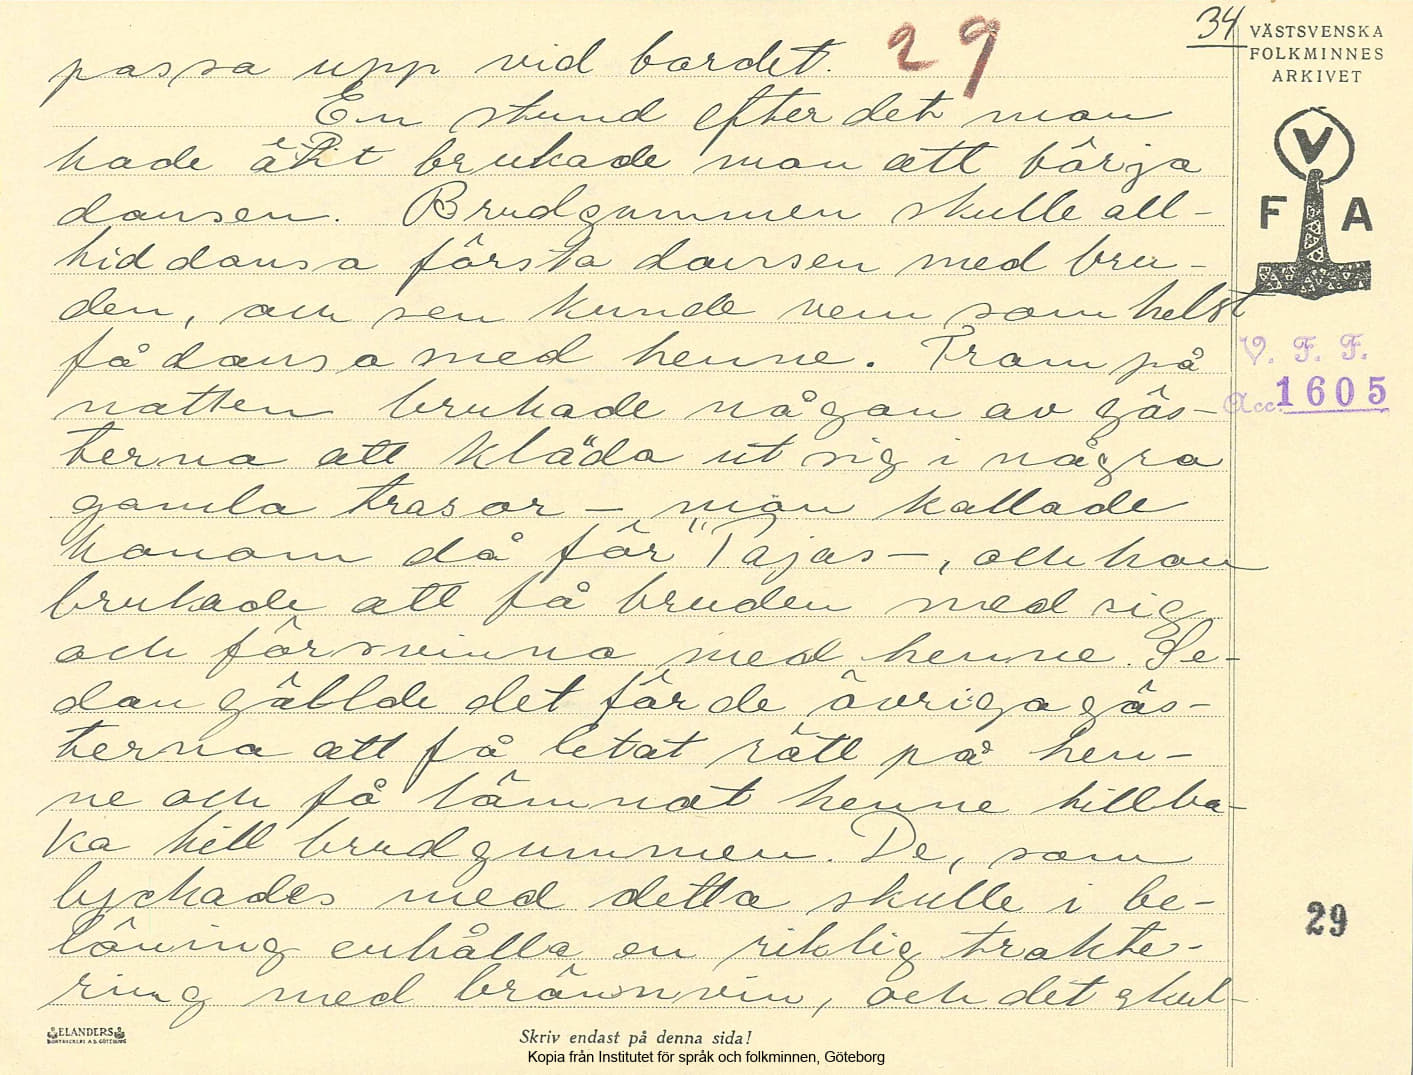 34
VÄSTSVENSKA
FOLKMINNES
ARKIVET
29
passa upp vid bordet.
En stund efter det man
hade ätit brukade man att börja
dansen. Brudgummen skulle all-
tid dansa första dansen med bru-
den, och sen kunde vem som helst
få dansa med henne. Fram på
natten brukade någon av gäs-
terna att kläda ut sig i några
gamla trasor – man kallade
honom då för "Pajas –, och han
brukade att få bruden med sig
och försvinna med henne. Se-
dan gällde det för de övriga gäs-
terna att få letat rätt på hen-
ne och få lämnat henne tillba-
ka till brudgummen. De, som
lyckades med detta skulle i be-
löning erhålla en riklig trakte-
ring med brännvin, och det skul-
V
F A
V. F. F.
Acc. 1605
29
ELANDERS
BOKTRYCKERI A.B. GÖTEBORG
Skriv endast på denna sida!
Kopia från Institutet för språk och folkminnen, Göteborg